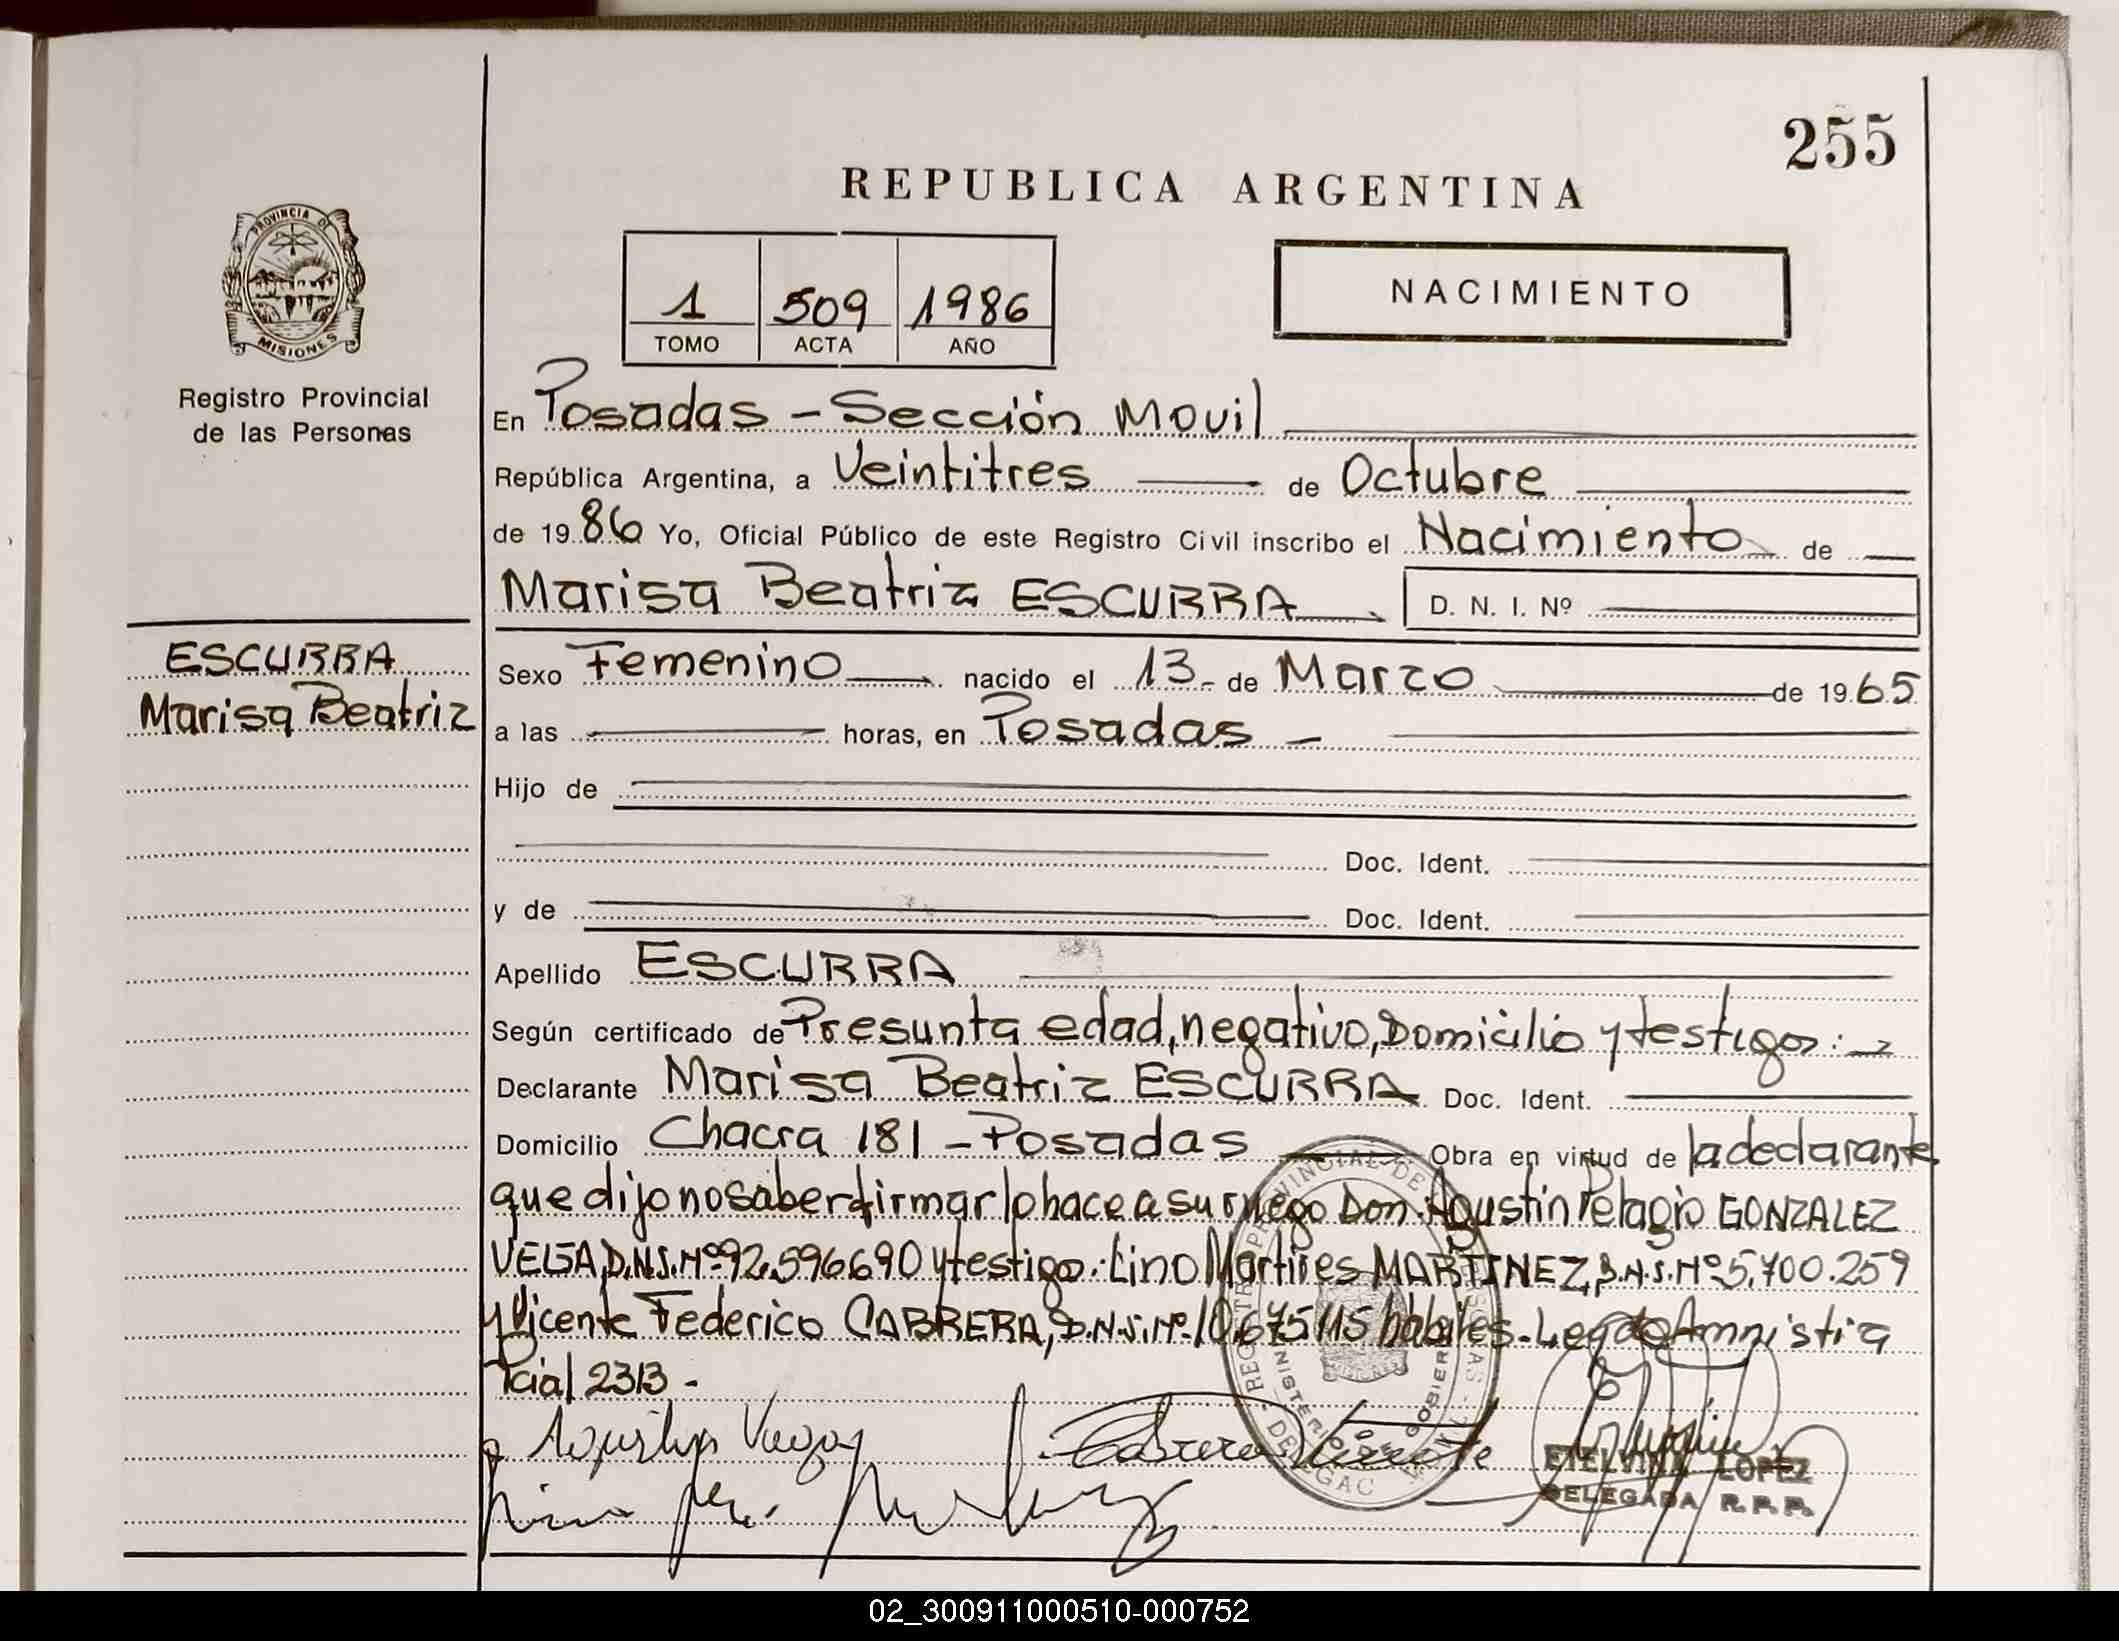 255
REPUBLICA ARGENTINA
PROVINCIA DE
MISIONES
1 509 1986
TOMO ACTA AÑO
NACIMIENTO
Registro Provincial
de las Personas
En Posadas - Sección Movil
República Argentina, a Veintitres de Octubre
de 1986 Yo, Oficial Público de este Registro Civil inscribo el Nacimiento de
Marisa Beatriz ESCURRA D. N. I. Nº
ESCURRA
Marisa Beatriz
Sexo Femenino nacido el 13 de Marzo de 1965
a las horas, en Posadas -
Hijo de
Doc. Ident.
y de Doc. Ident.
Apellido ESCURRA
Según certificado de Presunta edad, negativo, Domicilio y testigos:
Declarante Marisa Beatriz ESCURRA Doc. Ident.
Domicilio Chacra 181 - Posadas Obra en virtud de la declarante
que dijo no saber firmar lo hace a su ruego Don Agustin Pelagio GONZALEZ
D.N.I. Nº 92.596690 y testigos: Lino Martires MARTINEZ, D.N.I. Nº 5.700.259
y Vicente Federico CABRERA, D.N.I. Nº 10.675115 hábiles - Ley de Amnistia
Pcial 2313 -
Cabrera Vicente
ETELVINA LOPEZ
DELEGADA R. P. P.
02_300911000510-000752